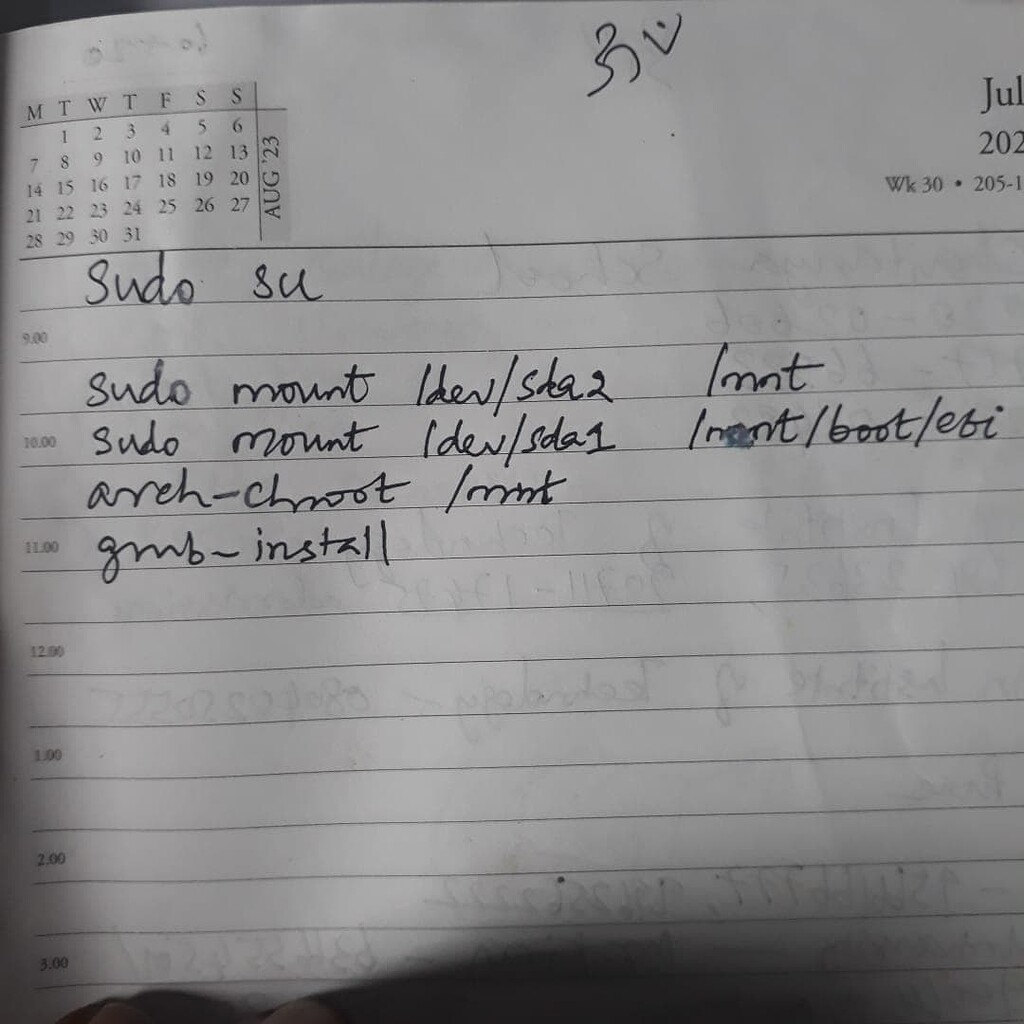 M T W T F S S
1 2 3 4 5 6
7 8 9 10 11 12 13
14 15 16 17 18 19 20
21 22 23 24 25 26 27
28 29 30 31
AUG '23
Jul
202
Wk 30 • 205-1
Sudo su
9.00
sudo mount /dev/sda2 /mnt
10.00 sudo mount /dev/sda1 /mnt/boot/efi
arch-chroot /mnt
11.00 grub-install
12.00
1.00
2.00
3.00